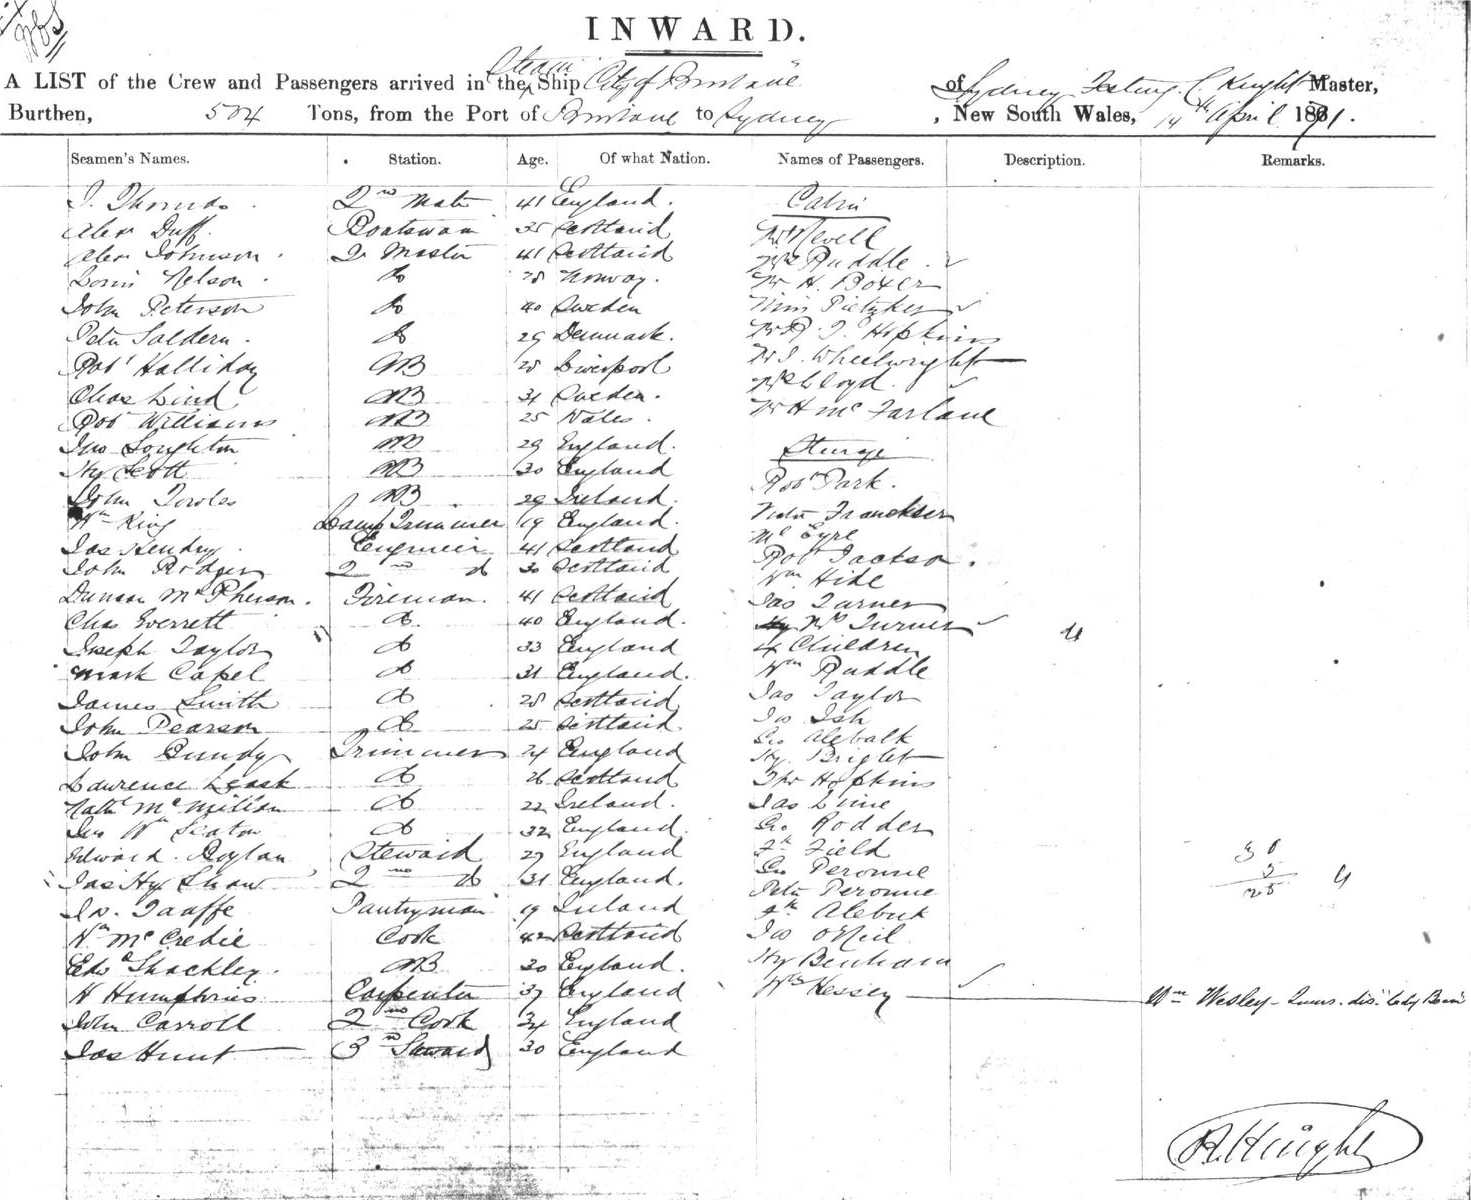 INWARD.
A LIST of the Crew and Passengers arrived in the Steam Ship City of Brisbane of Sydney Knight Master,
Burthen, 504 Tons, from the Port of Brisbane to Sydney, New South Wales, 14th April 1871.
Seamen's Names. Station. Age. Of what Nation. Names of Passengers. Description. Remarks.
J. Thomas 2nd Mate 41 England. Cabin
Alex Duff. Boatswain 35 Scotland Mr Nevell
Alex Johnson. Qr Master 41 Scotland Mrs Ruddle
Nelson. Do 28 Norway. Mr H. Boxer
John Peterson Do 40 Sweden Miss
Peter Saldern. Do 29 Denmark. Hopkins
Robt Halliday AB 28 Liverpool Mr J. Wheelwright
Chas Lind AB 34 Sweden. Lloyd.
Robt Williams AB 25 Wales. Mr H McFarlane
Jno Loughton AB 29 England. Sturge
Hy Scott AB 30 England Robt Park.
John Towles AB 29 Ireland.
Wm King Lamp Trimmer 19 England.
Jas Hendry. Engineer 41 Scotland Eyre
John Rodger 2nd do 30 Scotland Robt Jackson.
Duncan McPherson. Fireman. 41 Scotland Wm Hide
Chas Everett Do 40 England. Jas Turner
Joseph Taylor Do 33 England Mrs Turner 4
Mark Capel Do 31 England. 4 Children
James Smith Do 28 Scotland Wm Ruddle
John Pearson Do 25 Scotland Jas Taylor
John Gundy Trimmer 24 England Jno Ish
Lawrence Leask Do 26 Scotland Geo
McMillan Do 22 Ireland. Hy. Bright
Jno Wm Seaton Do 32 England. Thos Hopkins
Edward. Boylan Steward 27 England Jas Line
Jas Hy Shaw 2nd do 31 England. Geo Rodder
Jno. Taaffe Pantryman 19 Ireland Field
Wm McCredie Cook 42 Scotland Geo Peronne
Edwd Shackley. AB 30 England. Peter Peronne
H Humphries Carpenter 37 England
John Carroll 2nd Cook 34 England Jno ONeil
Jas Hunt 3rd Steward 30 England Hy Benham
Hessey
30
5
25 4
Wm Wesley
Knight